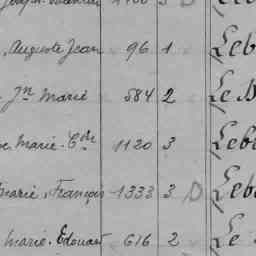 Auguste Jean 96 1 Leb
Jn Marie 584 2 Le
Marie. Cde 1120 3 Leb
Marie, François 1333 3 D Leb
Marie. Edouard 616 2 Le